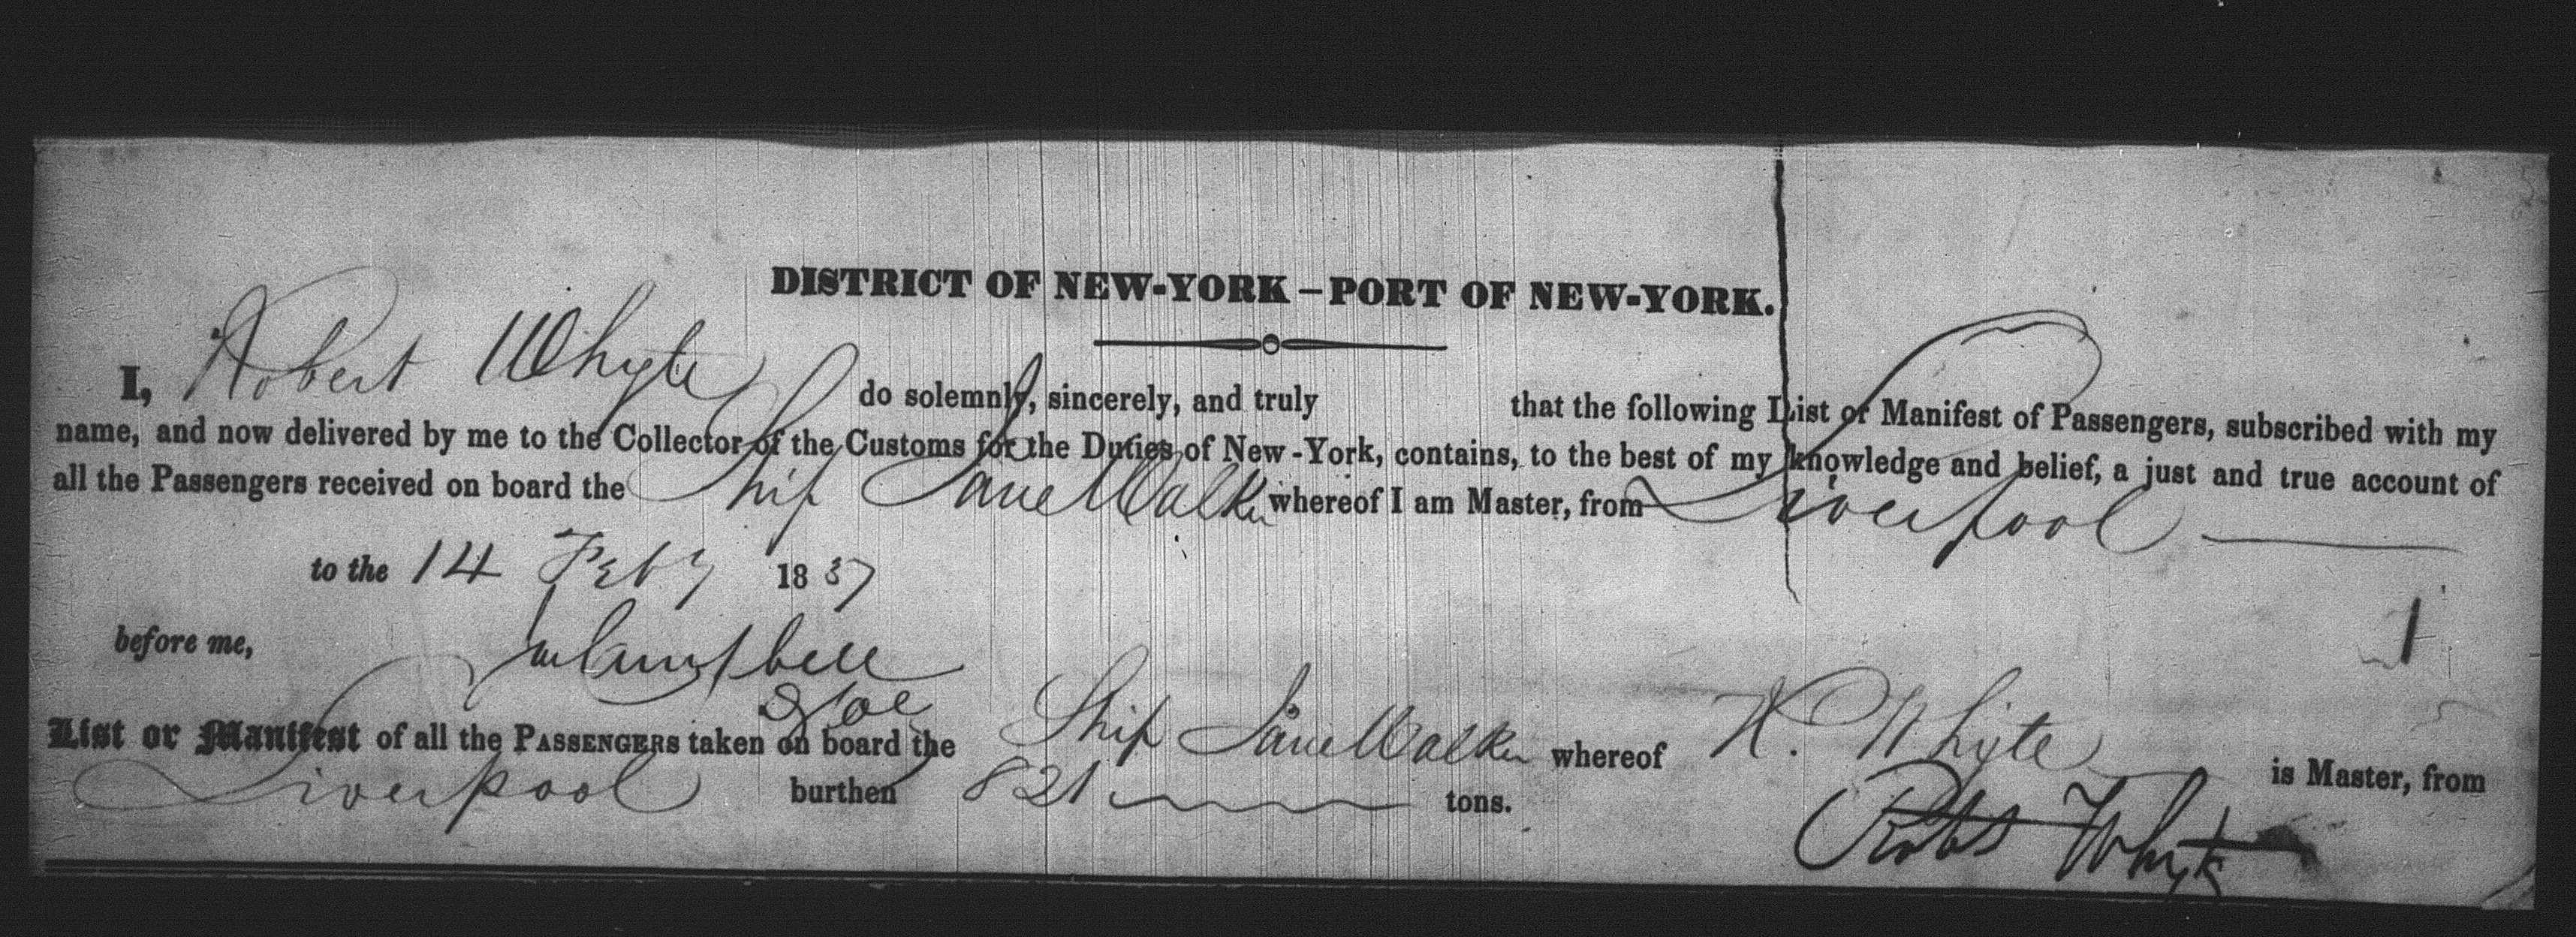 DISTRICT OF NEW-YORK–PORT OF NEW-YORK.
I, Robert Whyte do solemnly, sincerely, and truly that the following List or Manifest of Passengers, subscribed with my
name, and now delivered by me to the Collector of the Customs for the Duties of New-York, contains, to the best of my knowledge and belief, a just and true account of
all the Passengers received on board the Ship Jane Walker whereof I am Master, from Liverpool
to the 14 Feby 1837
before me, Campbell
List or Manifest of all the PASSENGERS taken on board the Ship Jane Walker whereof R. Whyte is Master, from
Liverpool burthen 821 tons.
Robt Whyte